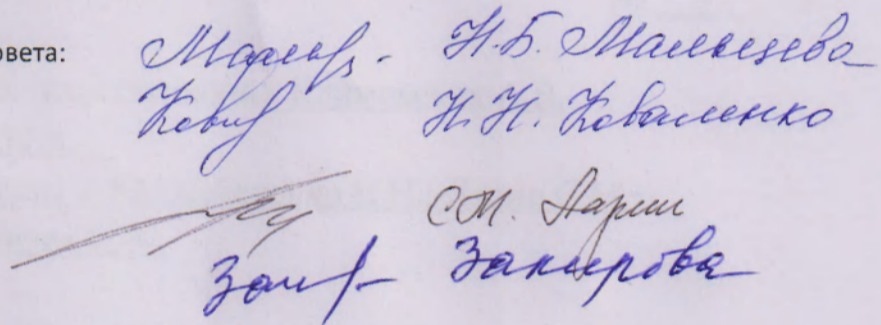 овета: Н.Б. Мальцева
Н.Н. Коваленко
С.М. Ларин
Закирова